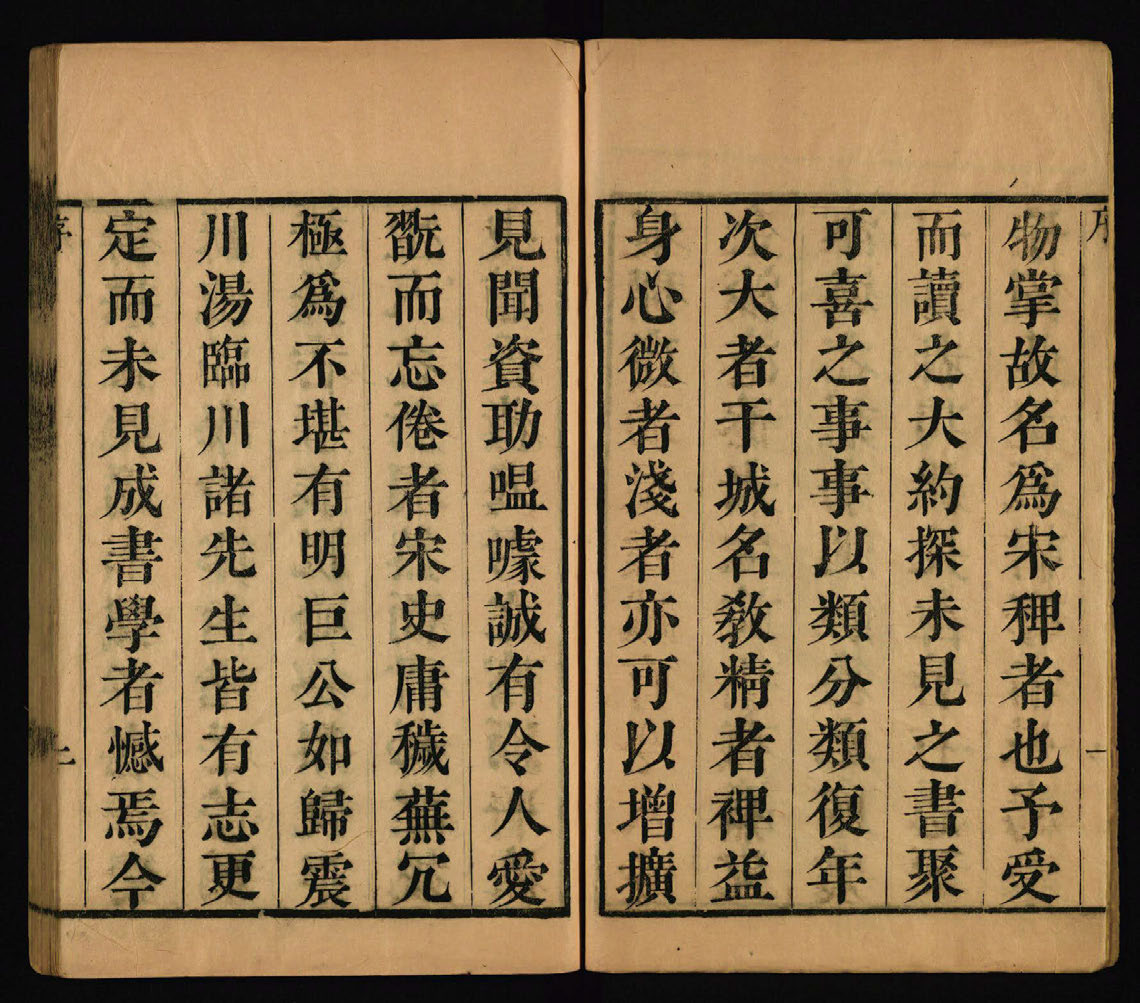 物掌故名爲宋稗者也予受
而讀之大約探未見之書聚
可喜之事事以類分類復年
次大者干城名敎精者裨益
身心微者淺者亦可以增擴
見聞資助嗢噱誠有令人愛
翫而忘倦者宋史庸穢蕪冗
極爲不堪有明巨公如歸震
川湯臨川諸先生皆有志更
定而未見成書學者憾焉今